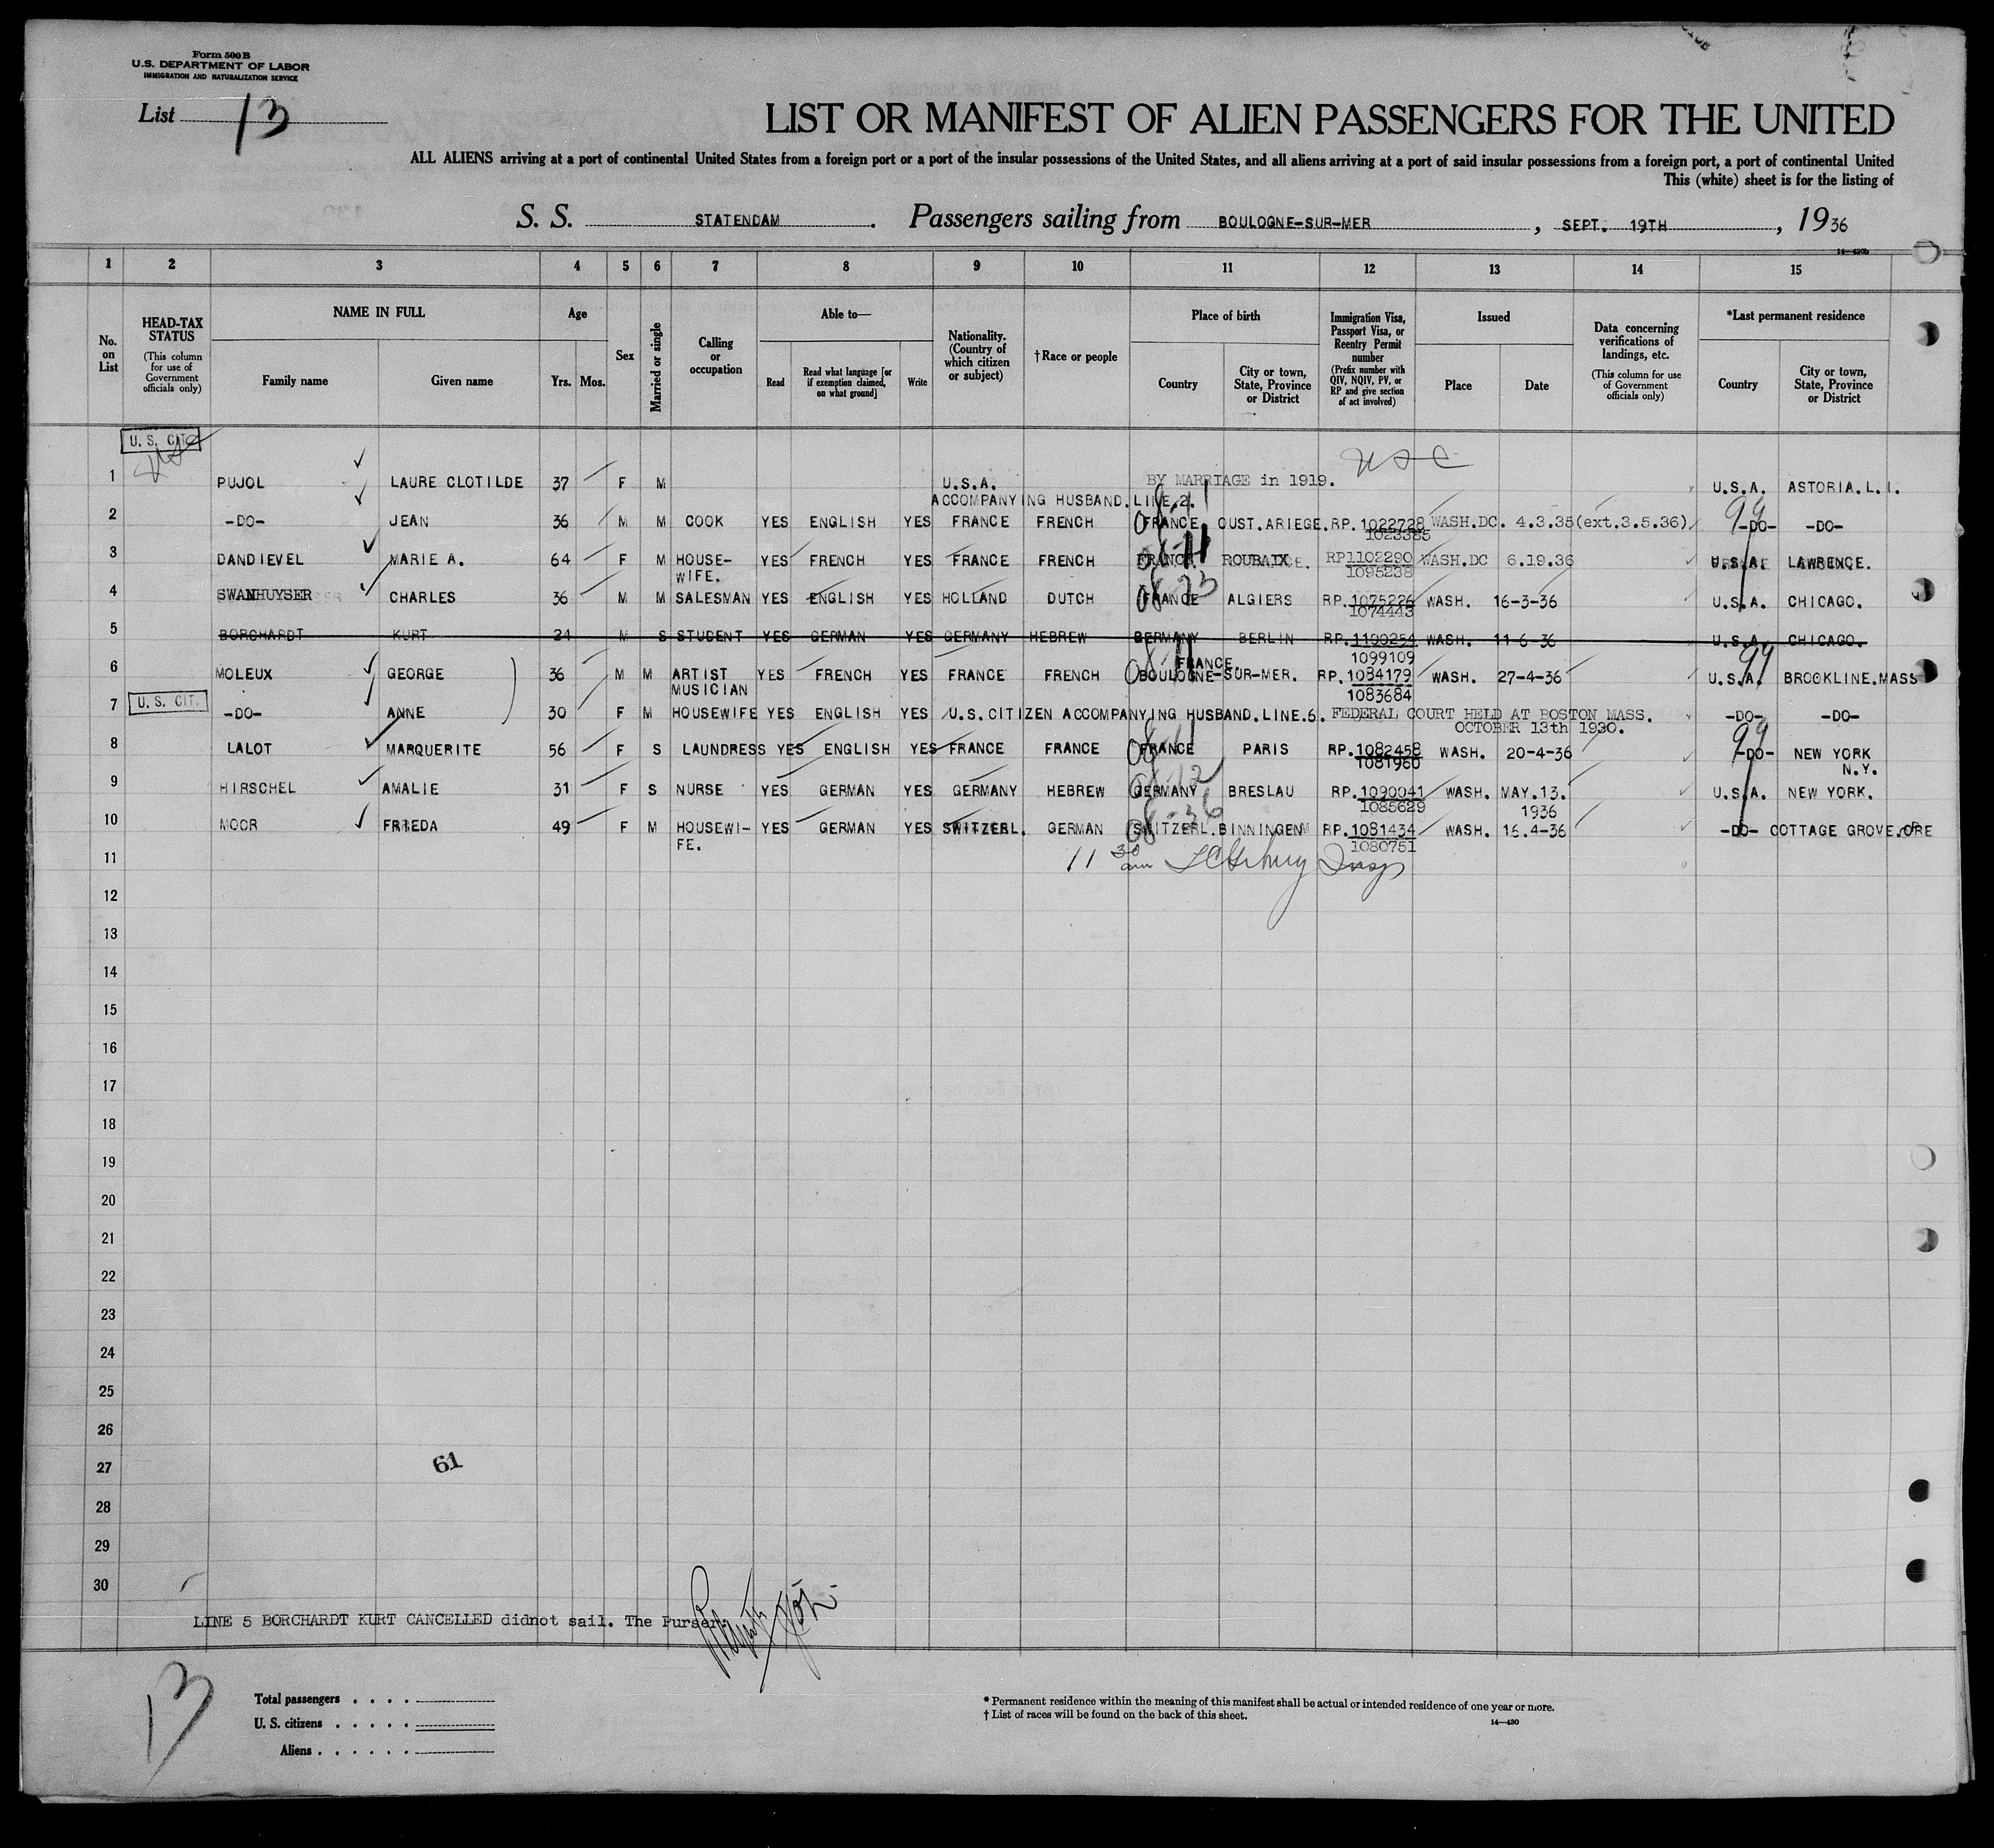 Form 500 B
U.S. DEPARTMENT OF LABOR
IMMIGRATION AND NATURALIZATION SERVICE
List 13
LIST OR MANIFEST OF ALIEN PASSENGERS FOR THE UNITED
ALL ALIENS arriving at a port of continental United States from a foreign port or a port of the insular possessions of the United States, and all aliens arriving at a port of said insular possessions from a foreign port, a port of continental United
This (white) sheet is for the listing of
S. S. STATENDAM. Passengers sailing from BOULOGNE-SUR-MER, SEPT. 19TH, 1936
14—430b
1 2 3 4 5 6 7 8 9 10 11 12 13 14 15
No. on List
HEAD-TAX STATUS (This column for use of Government officials only)
NAME IN FULL
Family name Given name
Age
Yrs. Mos.
Sex
Married or single
Calling or occupation
Able to—
Read Read what language [or if exemption claimed, on what ground] Write
Nationality. (Country of which citizen or subject)
†Race or people
Place of birth
Country City or town, State, Province or District
Immigration Visa, Passport Visa, or Reentry Permit number (Prefix number with QIV, NQIV, PV, or RP and give section of act involved)
Issued
Place Date
Data concerning verifications of landings, etc. (This column for use of Government officials only)
*Last permanent residence
Country City or town, State, Province or District
U. S. CIT.
USC
1 PUJOL LAURE CLOTILDE 37 F M U.S.A. BY MARRIAGE in 1919. U.S.A. ASTORIA.L.I.
ACCOMPANYING HUSBAND.LINE.2.
2 -DO- JEAN 36 M M COOK YES ENGLISH YES FRANCE FRENCH FRANCE OUST.ARIEGE. RP.1022728 WASH.DC. 4.3.35(ext.3.5.36) -DO- -DO-
1023385
3 DANDIEVEL MARIE A. 64 F M HOUSE- YES FRENCH YES FRANCE FRENCH FRANCE ROUBAIX RP1102290 WASH.DC 6.19.36 U.S.A. LAWRENCE.
WIFE. 1095238
4 SWANHUYSER CHARLES 36 M M SALESMAN YES ENGLISH YES HOLLAND DUTCH FRANCE ALGIERS RP.1075226 WASH. 16-3-36 U.S.A. CHICAGO.
1074443
5 BORCHARDT KURT 24 M S STUDENT YES GERMAN YES GERMANY HEBREW GERMANY BERLIN RP.1100254 WASH. 11-6-36 U.S.A. CHICAGO.
1099109
FRANCE.
6 MOLEUX GEORGE 36 M M ARTIST YES FRENCH YES FRANCE FRENCH BOULOGNE-SUR-MER. RP.1084179 WASH. 27-4-36 U.S.A. BROOKLINE.MASS
MUSICIAN 1083684
U. S. CIT.
7 -DO- ANNE 30 F M HOUSEWIFE YES ENGLISH YES U.S.CITIZEN ACCOMPANYING HUSBAND.LINE.6. FEDERAL COURT HELD AT BOSTON MASS. -DO- -DO-
OCTOBER 13th 1930.
8 LALOT MARQUERITE 56 F S LAUNDRESS YES ENGLISH YES FRANCE FRANCE FRANCE PARIS RP.1082458 WASH. 20-4-36 -DO- NEW YORK
1081960 N.Y.
9 HIRSCHEL AMALIE 31 F S NURSE YES GERMAN YES GERMANY HEBREW GERMANY BRESLAU RP.1090041 WASH. MAY.13. U.S.A. NEW YORK.
1085629 1936
10 MOOR FRIEDA 49 F M HOUSEWI- YES GERMAN YES SWITZERL. GERMAN SWITZERL. BINNINGEN RP.1081434 WASH. 16.4-36 -DO- COTTAGE GROVE.ORE
FE. 1080751
11 11 30 am Insp
12
13
14
15
16
17
18
19
20
21
22
23
24
25
26
27 61
28
29
30
LINE 5 BORCHARDT KURT CANCELLED didnot sail. The Purser.
13
Total passengers
U. S. citizens
Aliens
* Permanent residence within the meaning of this manifest shall be actual or intended residence of one year or more.
† List of races will be found on the back of this sheet.
14—430